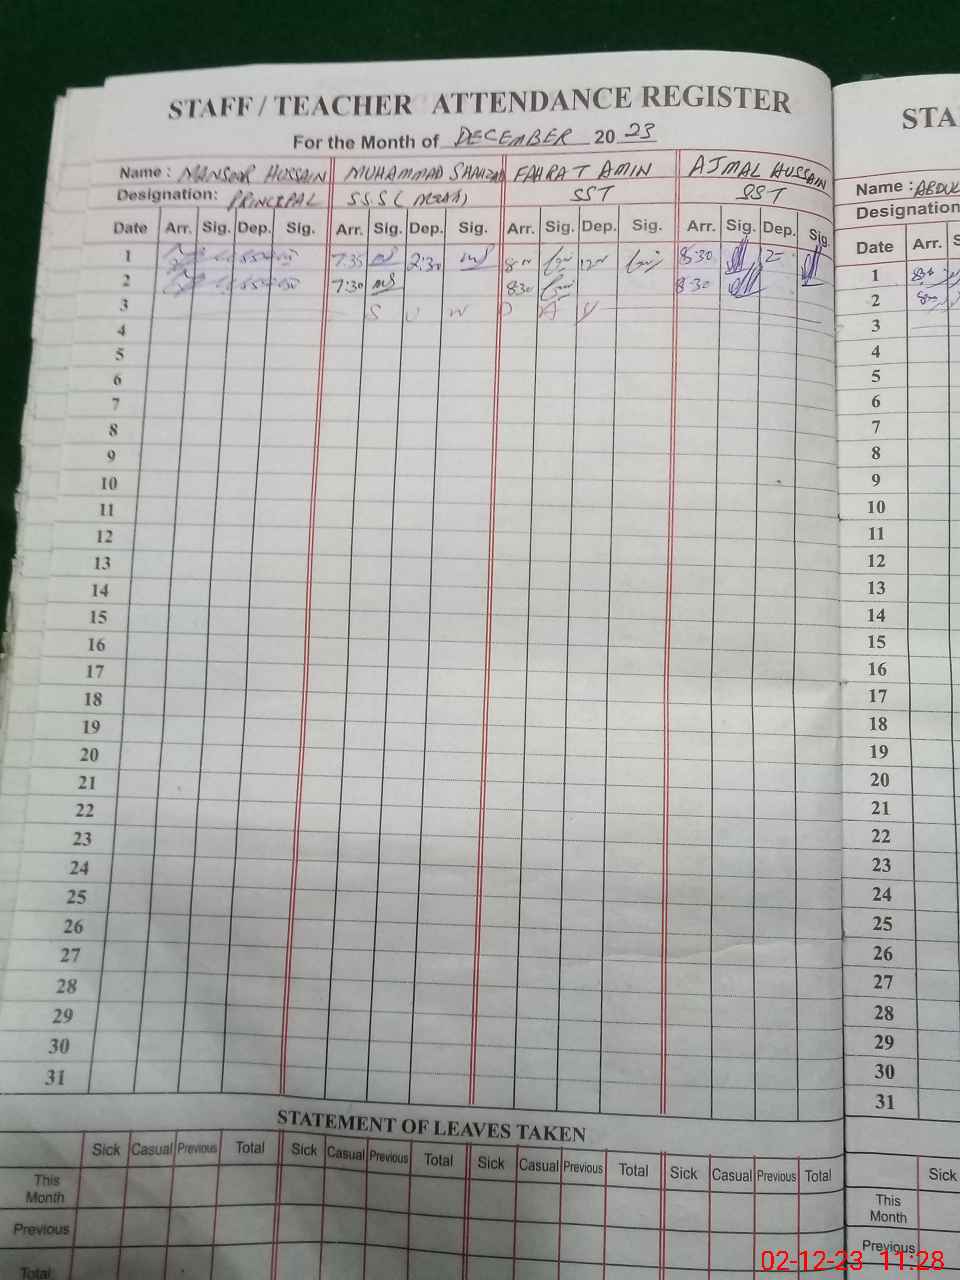 STAFF / TEACHER ATTENDANCE REGISTER
For the Month of DECEMBER 20 23
Name : MANSOOR HUSSAIN MUHAMMAD SHAHZAD FAHRAT AMIN AJMAL HUSSAIN
Designation: PRINCIPAL SSS SST SST
Date Arr. Sig. Dep. Sig. Arr. Sig. Dep. Sig. Arr. Sig. Dep. Sig. Arr. Sig. Dep. Sig.
1 7:35 2:30 8:30
2 7:30 830 8:30
3 S U N D A Y
4
5
6
7
8
9
10
11
12
13
14
15
16
17
18
19
20
21
22
23
24
25
26
27
28
29
30
31
STATEMENT OF LEAVES TAKEN
Sick Casual Previous Total Sick Casual Previous Total Sick Casual Previous Total Sick Casual Previous Total
This
Month
Previous
Total
STA
Name : ABDUL
Designation
Date Arr. S
1
2
3
4
5
6
7
8
9
10
11
12
13
14
15
16
17
18
19
20
21
22
23
24
25
26
27
28
29
30
31
Sick
This
Month
Previous
02-12-23 11:28